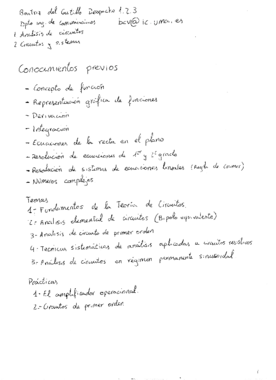 del Castillo Despacho 1.2.3
Dpto ing. de Comunicaciones bcv@ic.uma.es
1 Análisis de circuitos
2 Circuitos y sistemas
Conocimientos previos
- Concepto de función
- Representación gráfica de funciones
- Derivación
- Integración
- Ecuaciones de la recta en el plano
- Resolución de ecuaciones de 1er y 2º grado
- Resolución de sistemas de ecuaciones lineales (Regla de Cramer)
- Números complejos
Temas
1- Fundamentos de la Teoría de Circuitos.
2- Análisis elemental de circuitos (Bipolo equivalente)
3- Análisis de circuito de primer orden
4- Técnicas sistemáticas de análisis aplicadas a circuitos resistivos
5- Análisis de circuitos en régimen permanente sinusoidal
Prácticas
1- El amplificador operacional
2- Circuitos de primer orden